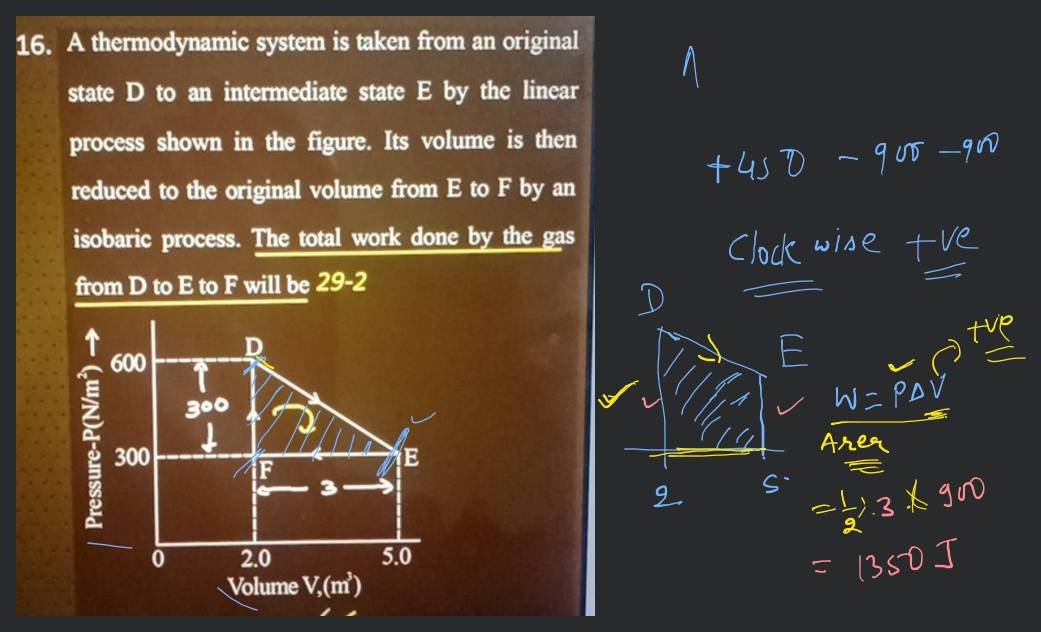 16. A thermodynamic system is taken from an original
state D to an intermediate state E by the linear
process shown in the figure. Its volume is then
reduced to the original volume from E to F by an
isobaric process. The total work done by the gas
from D to E to F will be 29-2
Pressure-P(N/m²)
600
D
300
300
F
E
3
0
2.0
5.0
Volume V,(m³)
+450 - 900 - 900
Clock wise +ve
D
E
2
5
+ve
W = PΔV
Area
= 1/2 × 3 × 900
= 1350 J